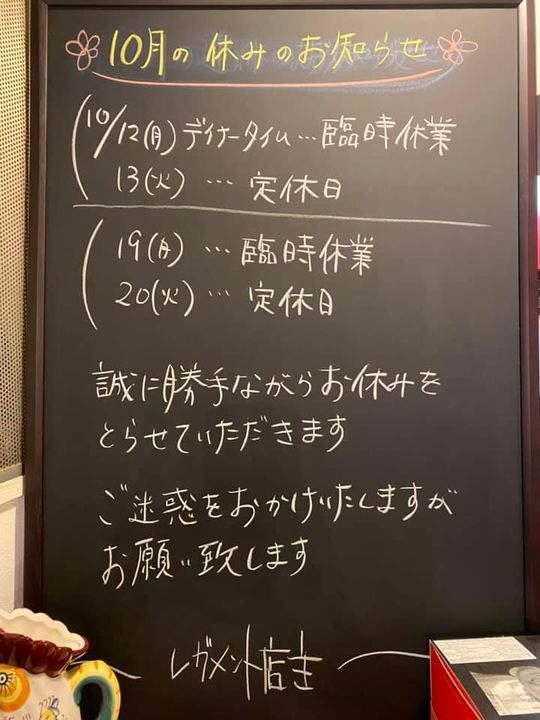 10月の休みのお知らせ
10/12(月)ディナータイム…臨時休業
13(火) … 定休日
19(月) … 臨時休業
20(火) … 定休日
誠に勝手ながらお休みを
とらせていただきます
ご迷惑をおかけいたしますが
お願い致します
レガメント店主